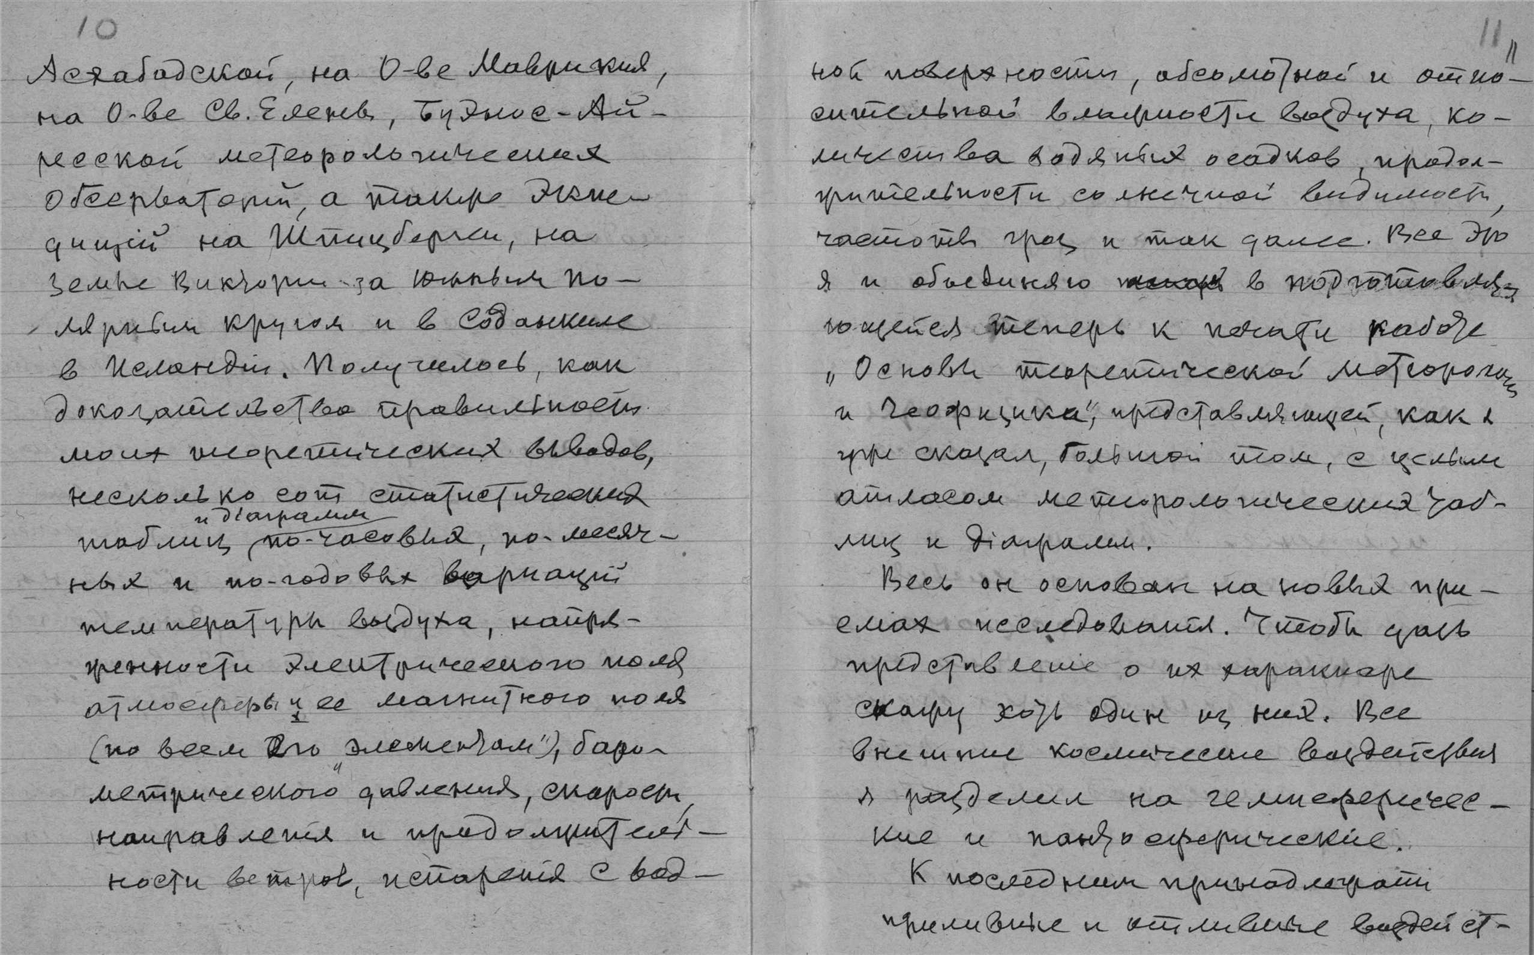 10
Асхабадской, на О-ве Маврикия,
на О-ве Св. Елены, Буэнос-Ай-
ресской метеорологических
Обсерваторий, а также Экспе-
диций на Шпицберген, на
Земле Виктории за Южным по-
лярным кругом и в Соданкиле
в Исландіи. Получилось, как
доказательство правильности
моих теоретических выводов,
несколько сот статистических
и діаграмм
таблиц по-часовых, по-месяч-
ных и по-годовых вариацій
температуры воздуха, напря-
женности электрического поля
атмосферы и ее магнитного поля
(по всем его „элементам"), баро-
метрического давления, скорости,
направленія и продолжитель-
ности ветров, испаренія с вод-
11
ной поверхности, абсолютной и отно-
сительной влажности воздуха, ко-
личества водяных осадков, продол-
жительности солнечной видимости,
частоты гроз и так далее. Все это
я и объединяю в подготовля-
ющейся теперь к печати работе
„Основы теоретической метеорологіи
и геофизики", представляющей, как я
уже сказал, большой том, с целым
атласом метеорологических таб-
лиц и діаграмм.
Весь он основан на новых при-
емах исследования. Чтобы дать
представленіе о их характере
скажу хоть один из них. Все
внешние космические воздействия
я разделил на гемисферичес-
кие и пантосферическіе.
К последним принадлежат
приливные и отливные воздейст-